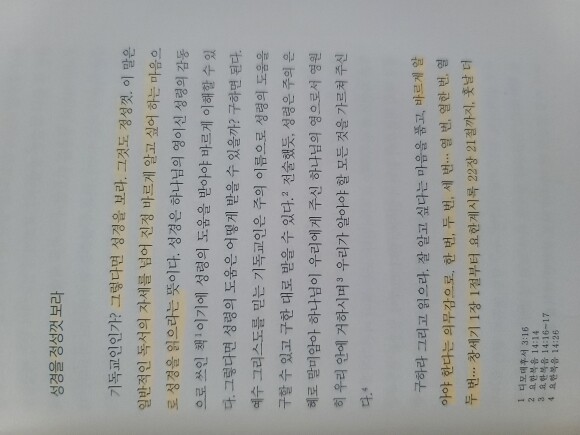 성경을 정성껏 보라
기독교인인가? 그렇다면 성경을 보라. 그것도 정성껏. 이 말은
일반적인 독서의 자세를 넘어 진정 바르게 알고 싶어 하는 마음으
로 성경을 읽으라는 뜻이다. 성경은 하나님의 영이신 성령의 감동
으로 쓰인 책¹이기에 성령의 도움을 받아야 바르게 이해할 수 있
다. 그렇다면 성령의 도움은 어떻게 받을 수 있을까? 구하면 된다.
예수 그리스도를 믿는 기독교인은 주의 이름으로 성령의 도움을
구할 수 있고 구한 대로 받을 수 있다.² 전술했듯, 성령은 주의 은
혜로 말미암아 하나님이 우리에게 주신 하나님의 영으로서 영원
히 우리 안에 거하시며³ 우리가 알아야 할 모든 것을 가르쳐 주신
다.⁴
구하라 그리고 읽으라. 잘 알고 싶다는 마음을 품고, 바르게 알
아야 한다는 의무감으로, 한 번, 두 번, 세 번… 열 번, 열한 번, 열
두 번… 창세기 1장 1절부터 요한계시록 22장 21절까지, 훗날 더
1 디모데후서 3:16
2 요한복음 14:14
3 요한복음 14:16-17
4 요한복음 14:26